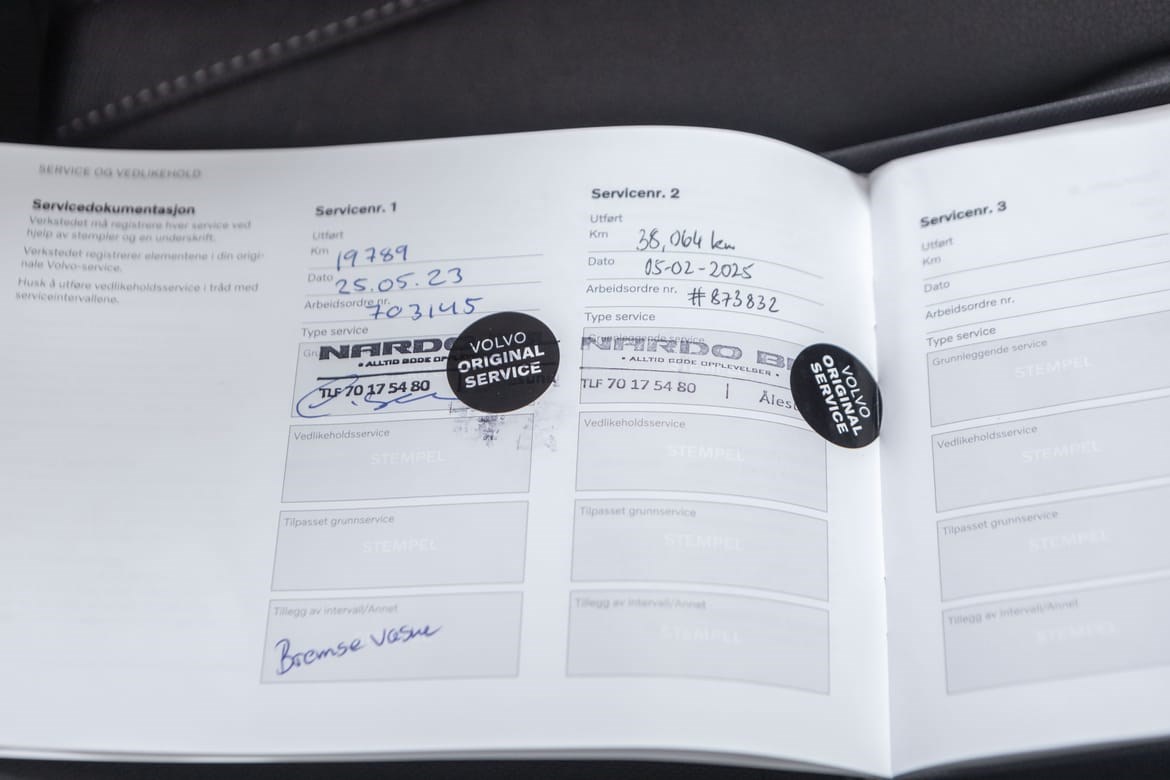 SERVICE OG VEDLIKEHOLD
Servicedokumentasjon
Verkstedet må registrere hver service ved
hjelp av stempler og en underskrift.
Verkstedet registrerer elementene i din origi-
nale Volvo-service.
Husk å utføre vedlikeholdsservice i tråd med
serviceintervallene.
Servicenr. 1
Utført
Km 19789
Dato 25.05.23
Arbeidsordre nr. 703145
Type service
NARDO
• ALLTID GODE
TLF 70 17 54 80
VOLVO
ORIGINAL
SERVICE
Vedlikeholdsservice
STEMPEL
Tilpasset grunnservice
STEMPEL
Tillegg av intervall/Annet
Bremse væske
Servicenr. 2
Utført
Km 38,064 km
Dato 05-02-2025
Arbeidsordre nr. #873832
Type service
Grunnleggende service
NARDO
• ALLTID GODE OPPLEVELSER •
TLF 70 17 54 80 | Åles
VOLVO
ORIGINAL
SERVICE
Vedlikeholdsservice
STEMPEL
Tilpasset grunnservice
STEMPEL
Tillegg av intervall/Annet
STEMPEL
Servicenr. 3
Utført
Km
Dato
Arbeidsordre nr.
Type service
Grunnleggende service
STEMPEL
Vedlikeholdsservice
STEMPEL
Tilpasset grunnservice
STEMPEL
Tillegg av intervall/Annet
STEMPEL